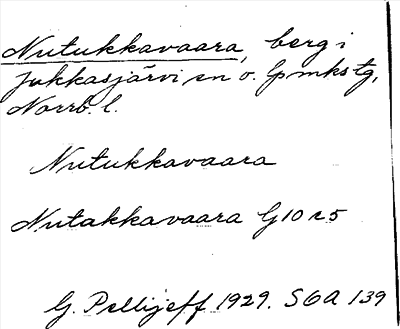 Nutukkavaara, berg i
Jukkasjärvi sn o. lpmkstg,
Norrb. l.
Nutukkavaara
Nutakkavaara G10 r5
G. Pellijeff 1929. SOA 139